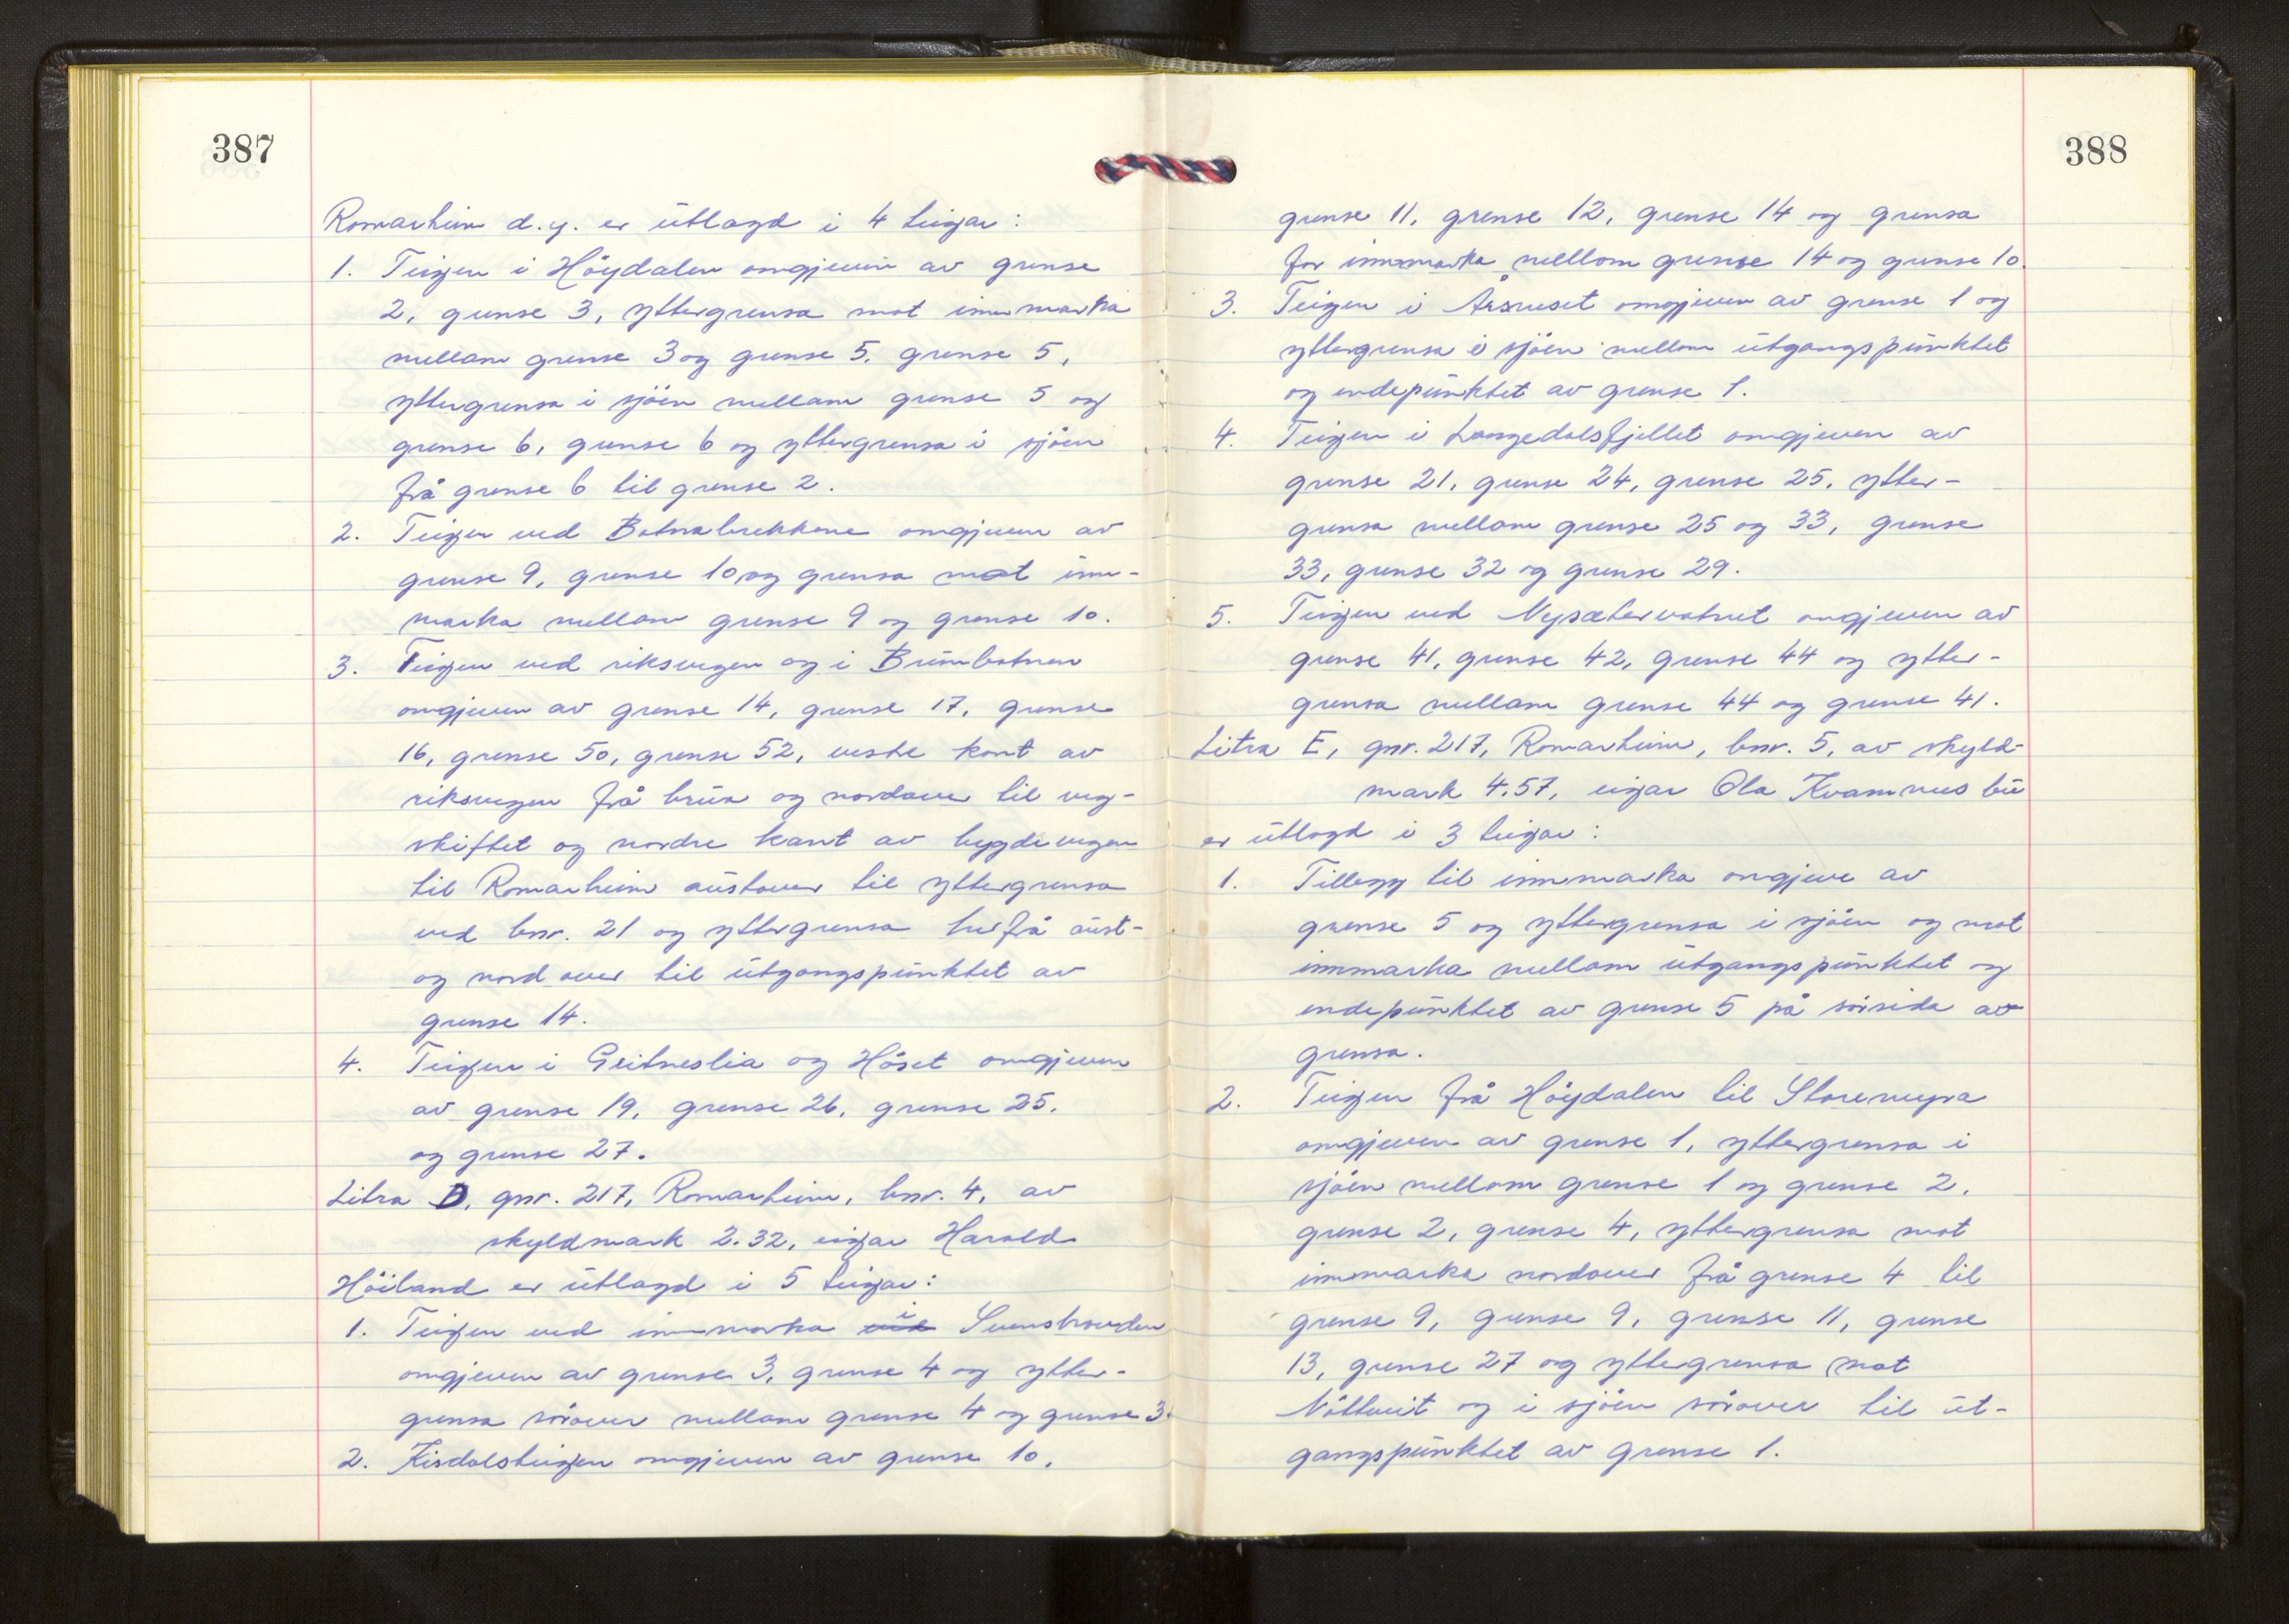 387
Romarheim d.y. er utlagd i 4 teigar:
1. Teigen i Höydalen omgjeven av grense
2, grense 3, yttergrensa mot innmarka
mellom grense 3 og grense 5, grense 5,
yttergrensa i sjöen mellom grense 5 og
grense 6, grense 6 og yttergrensa i sjöen
frå grense 6 til grense 2.
2. Teigen ved Botnabrekkene omgjeven av
grense 9, grense 10 og grensa mot inn-
marka mellom grense 9 og grense 10.
3. Teigen ved riksvegen og i Brúmbotnen
omgjeven av grense 14, grense 17, grense
16, grense 50, grense 52, vestre kant av
riksvegen frå brua og nordover til veg-
skiftet og nordre kant av bygdevegen
til Romarheim austover til yttergrensa
ved bnr. 21 og yttergrensa herfrå aust-
og nordover til utgangspunktet av
grense 14.
4. Teigen i Gritneslia og Höset omgjeven
av grense 19, grense 26, grense 25,
og grense 27.
Litra D, gnr. 217, Romarheim, bnr. 4, av
skyldmark 2.32, eigar Harald
Höiland er utlagd i 5 teigar:
1. Teigen ved innmarka i Svenshovden
omgjeven av grense 3, grense 4 og ytter-
grensa sörover mellom grense 4 og grense 3.
2. Kisdalsteigen omgjeven av grense 10,
388
grense 11, grense 12, grense 14 og grensa
for innmarka mellom grense 14 og grense 10.
3. Teigen i Årsneset omgjeven av grense 1 og
yttergrensa i sjöen mellom utgangspunktet
og endepunktet av grense 1.
4. Teigen i Langedalsfjellet omgjeven av
grense 21, grense 24, grense 25, ytter-
grensa mellom grense 25 og 33, grense
33, grense 32 og grense 29.
5. Teigen ved Nysætervatnet omgjeven av
grense 41, grense 42, grense 44 og ytter-
grensa mellom grense 44 og grense 41.
Litra E, gnr. 217, Romarheim, bnr. 5, av skyld-
mark 4.57, eigar Ola Kvamme's bu
er utlagd i 3 teigar:
1. Tillegg til innmarka omgjeve av
grense 5 og yttergrensa i sjöen og mot
innmarka mellom utgangspunktet og
endepunktet av grense 5 på sörsida av
grensa.
2. Teigen frå Höydalen til Storemyra
omgjeven av grense 1, yttergrensa i
sjöen mellom grense 1 og grense 2,
grense 2, grense 4, yttergrensa mot
innmarka nordover frå grense 4 til
grense 9, grense 9, grense 11, grense
13, grense 27 og yttergrensa mot
Nöttveit og i sjöen sörover til ut-
gangspunktet av grense 1.